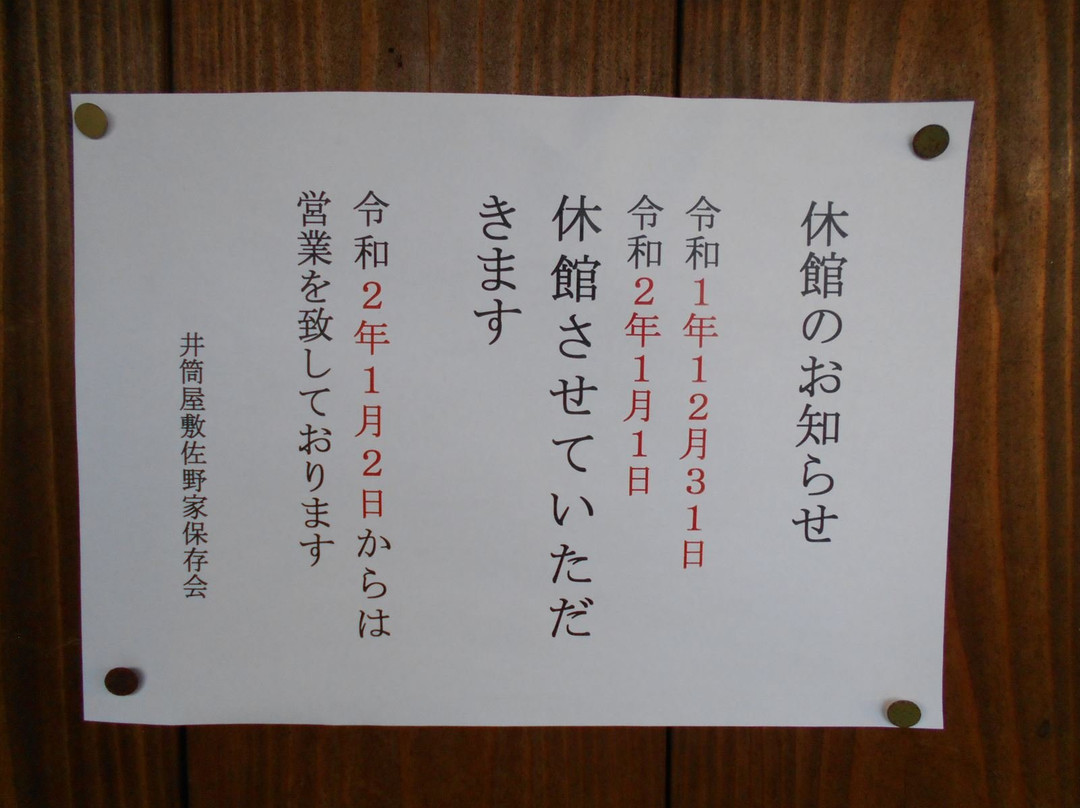 休館のお知らせ
令和１年１２月３１日
令和２年１月１日
休館させていただ
きます
令和２年１月２日からは
営業を致しております
井筒屋敷佐野家保存会